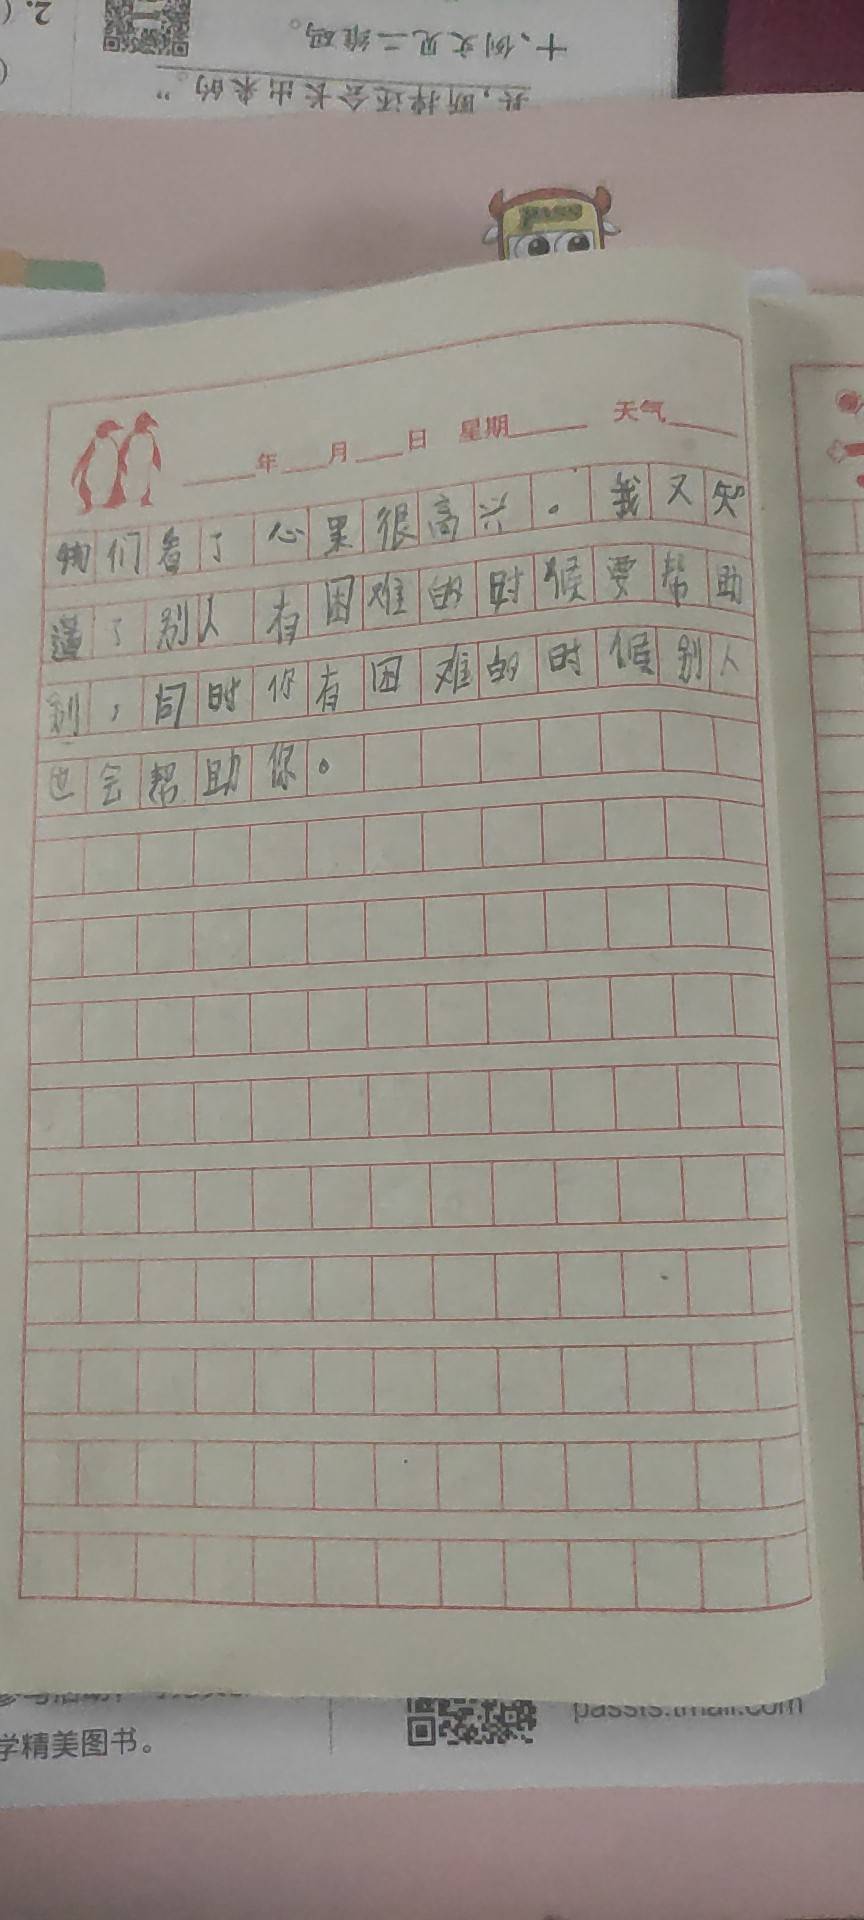 2.(
十、例文见二维码。
共,断掉还会长出来的。”
pass
年 月 日 星期 天气
他们看了心里很高兴。我又知
道了别人有困难的时候要帮助
别,同时你有困难的时候别人
也会帮助你。
学精美图书。